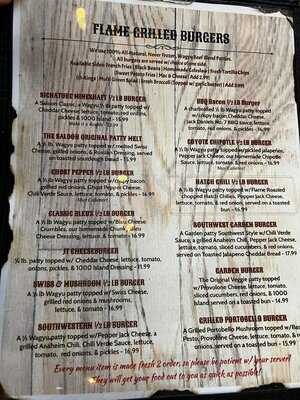 FLAME GRILLED BURGERS
We use 100% All-Natural, Never Frozen, Wagyu Beef Blend Patties.
All burgers are served with choice of one side.
Available Sides: French Fries | Black Beans | Homemade Coleslaw | Fresh Tortilla Chips
(Sweet Potato Fries | Mac & Cheese | Add 2.99)
(O-Rings | Mini Green Salad | Fresh Broccoli (Topped w/ garlic butter) | Add 3.99)
SIGNATURE MINESHAFT ½ LB BURGER
A Saloon Classic, a Wagyu ½ lb patty topped w/
Cheddar Cheese lettuce, tomato, red onions,
pickles & 1000 Island - 16.99
THE SALOON ORIGINAL PATTY MELT
A ½ lb. Wagyu patty topped w/ melted Swiss
Cheese, grilled onions, & Russian Dressing, served
on toasted sourdough bread - 15.99
GHOST PEPPER ½ LB BURGER
A ½ lb. Wagyu patty topped w/ crispy bacon,
grilled red onions, Ghost Pepper Cheese,
Chili Verde Sauce, lettuce, tomato, & pickles - 16.99
CLASSIC BLEUX ½ LB BURGER
A ½ lb Wagyu patty topped w/ Bleu Cheese
Crumbles, our homemade Chunky Bleu
Cheese Dressing, lettuce, & tomato - 16.99
JR CHEESEBURGER
⅓ lb. patty topped w/ Cheddar Cheese, lettuce, tomato,
onions, pickles, & 1000 Island Dressing - 11.99
SWISS & MUSHROOM ½ LB BURGER
A ½ lb Wagyu patty topped w/ Swiss Cheese,
grilled red onions & mushrooms,
lettuce, & tomato - 16.99
SOUTHWESTERN ½ LB BURGER
A ½ lb Wagyu patty topped w/ Pepper Jack Cheese, a
grilled Anaheim Chili, Chili Verde Sauce, lettuce,
tomato, red onions, & pickles - 16.99
BBQ Bacon ½ LB Burger
A charbroiled ½ lb Wagyu patty topped
w/ crispy bacon, Cheddar Cheese,
Jack Daniels No. 7 BBQ sauce, lettuce,
tomato, red onions, & pickles - 16.99
COYOTE CHIPOTLE ½ LB BURGER
A ½ lb. Wagyu patty topped w/ pickled jalapeños,
Pepper Jack Cheese, our homemade Chipotle
Sauce, lettuce, tomato, & red onion - 16.99
HATCH CHILI ½ LB BURGER
A ½ lb. Wagyu patty topped w/ Flame Roasted
Chopped Hatch Chilies, Pepper Jack Cheese,
lettuce, tomato, & red onion, served on a toasted
bun - 16.99
SOUTHWEST GARDEN BURGER
A Garden patty Southwest Style w/ Chili Verde
Sauce, a grilled Anaheim Chili, Pepper Jack Cheese,
lettuce, tomato, sliced cucumbers, & red onions,
served on Toasted Jalapeno Cheddar Bread - 17.99
GARDEN BURGER
The Original Veggie patty topped
w/ Provolone Cheese, lettuce, tomato,
sliced cucumbers, red onions, & 1000
Island served on a toasted bun - 14.99
GRILLED PORTOBELLO BURGER
A Grilled Portobello Mushroom topped w/
Pesto, Provolone Cheese, lettuce, tomato, &
red onion, served on a toasted bun - 14.99
Every menu item is made fresh 2 order, so please be patient w/ your server!
They will get your food out to you as quick as possible!